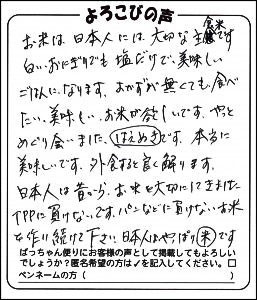 よろこびの声
お米は、日本人には、大切な主食です
白いおにぎりでも塩だけで、美味しい
ごはんになります。おかずが無くても、食べ
たい、美味しい、お米が欲しいです。やっと
めぐり会いました、はえぬきです。本当に
美味しいです。外食すると良く解ります。
日本人は昔から、お米を大切にしてきました
TPPに負けないです。パンなどに負けないお米
を作り続けて下さい。日本人はやっぱり米です
ばっちゃん便りにお客様の声として掲載してもよろしい
でしょうか?匿名希望の方は✓を記入してください。□
ペンネームの方( )